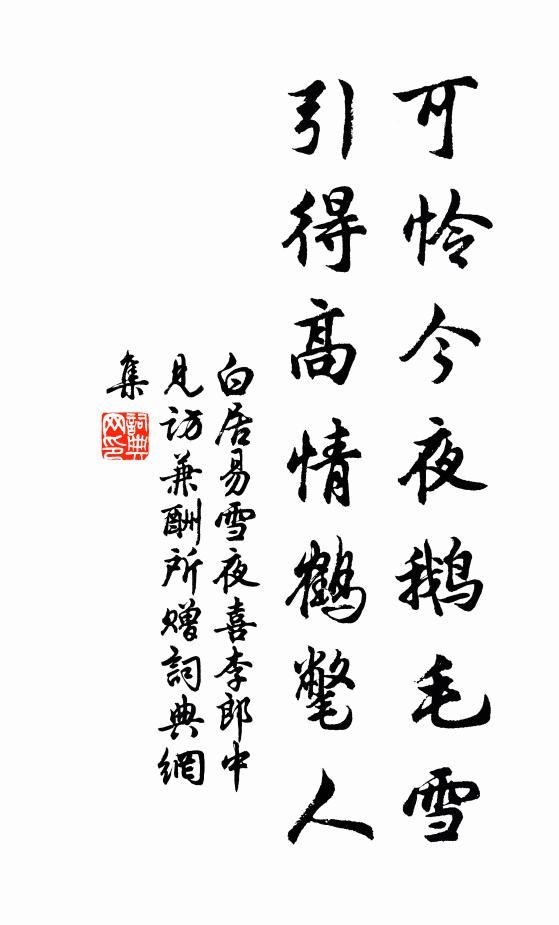 可怜今夜鹅毛雪
引得高情鹤氅人
白居易雪夜喜李郎中
見访兼酬所赠詞典網
集
詞典
网印